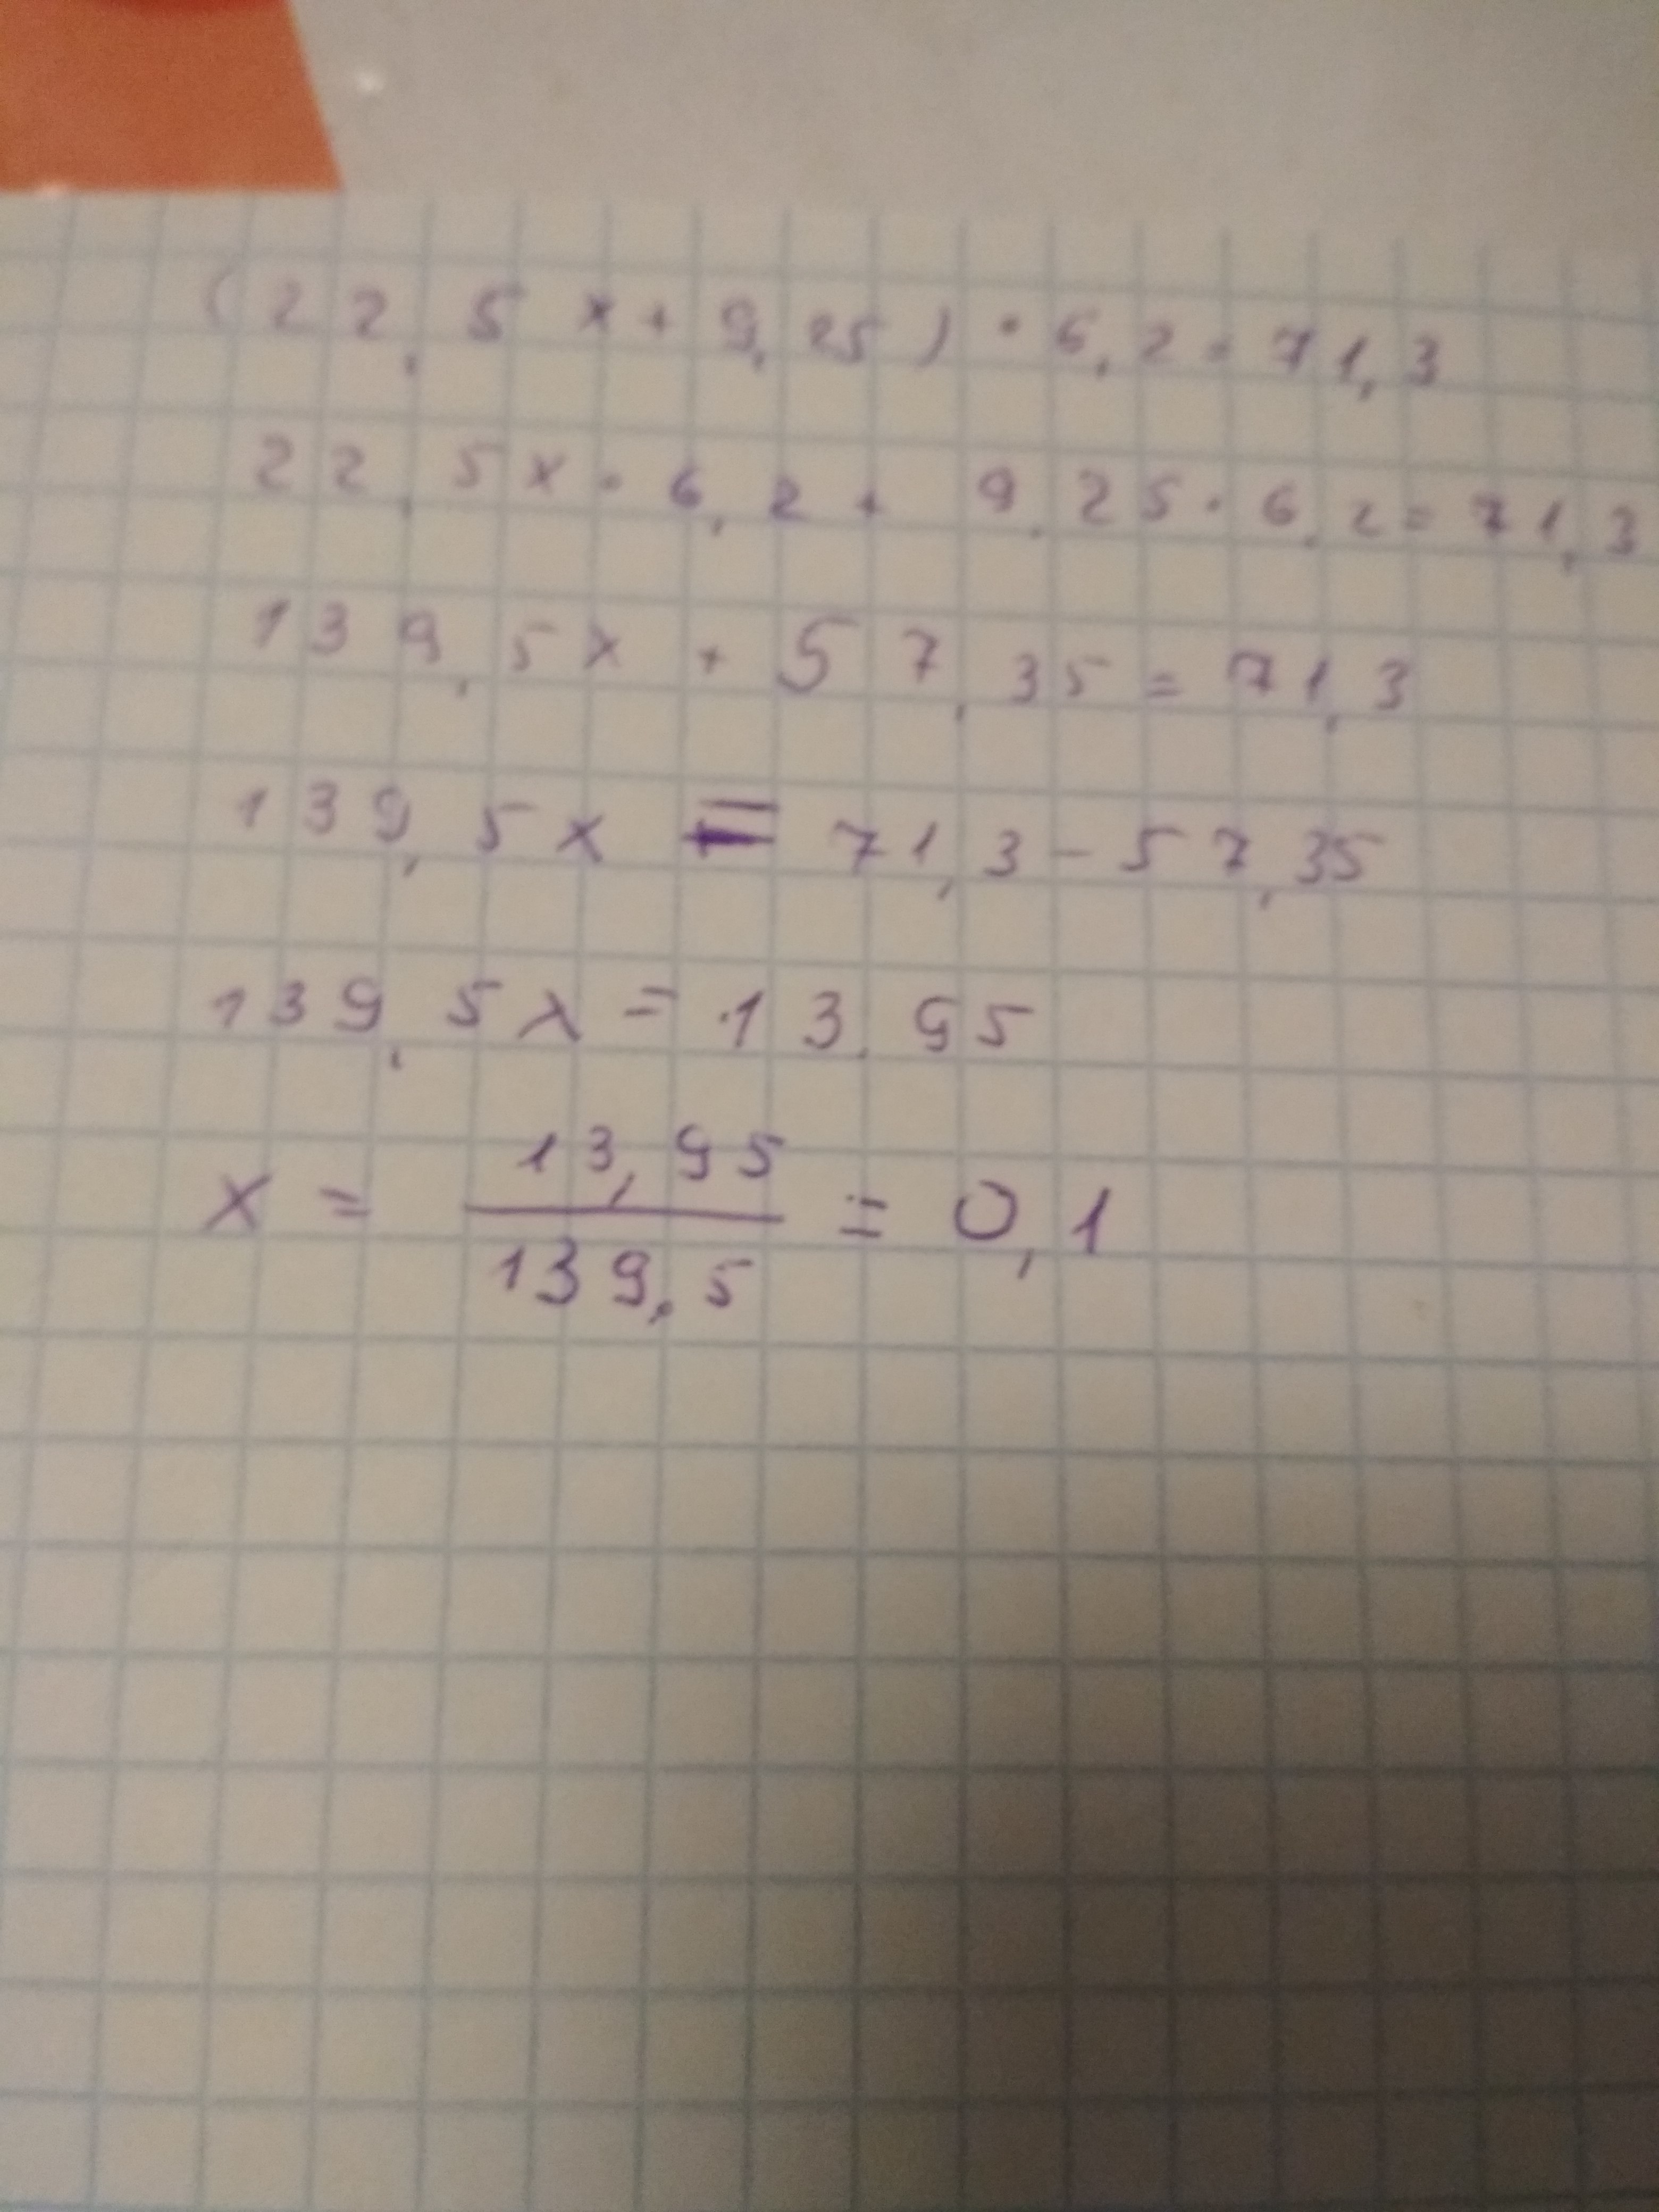 (22,5x+9,25)·6,2=71,3
22,5x·6,2+9,25·6,2=71,3
139,5x+57,35=71,3
139,5x=71,3-57,35
139,5x=13,95
x=13,95/139,5=0,1